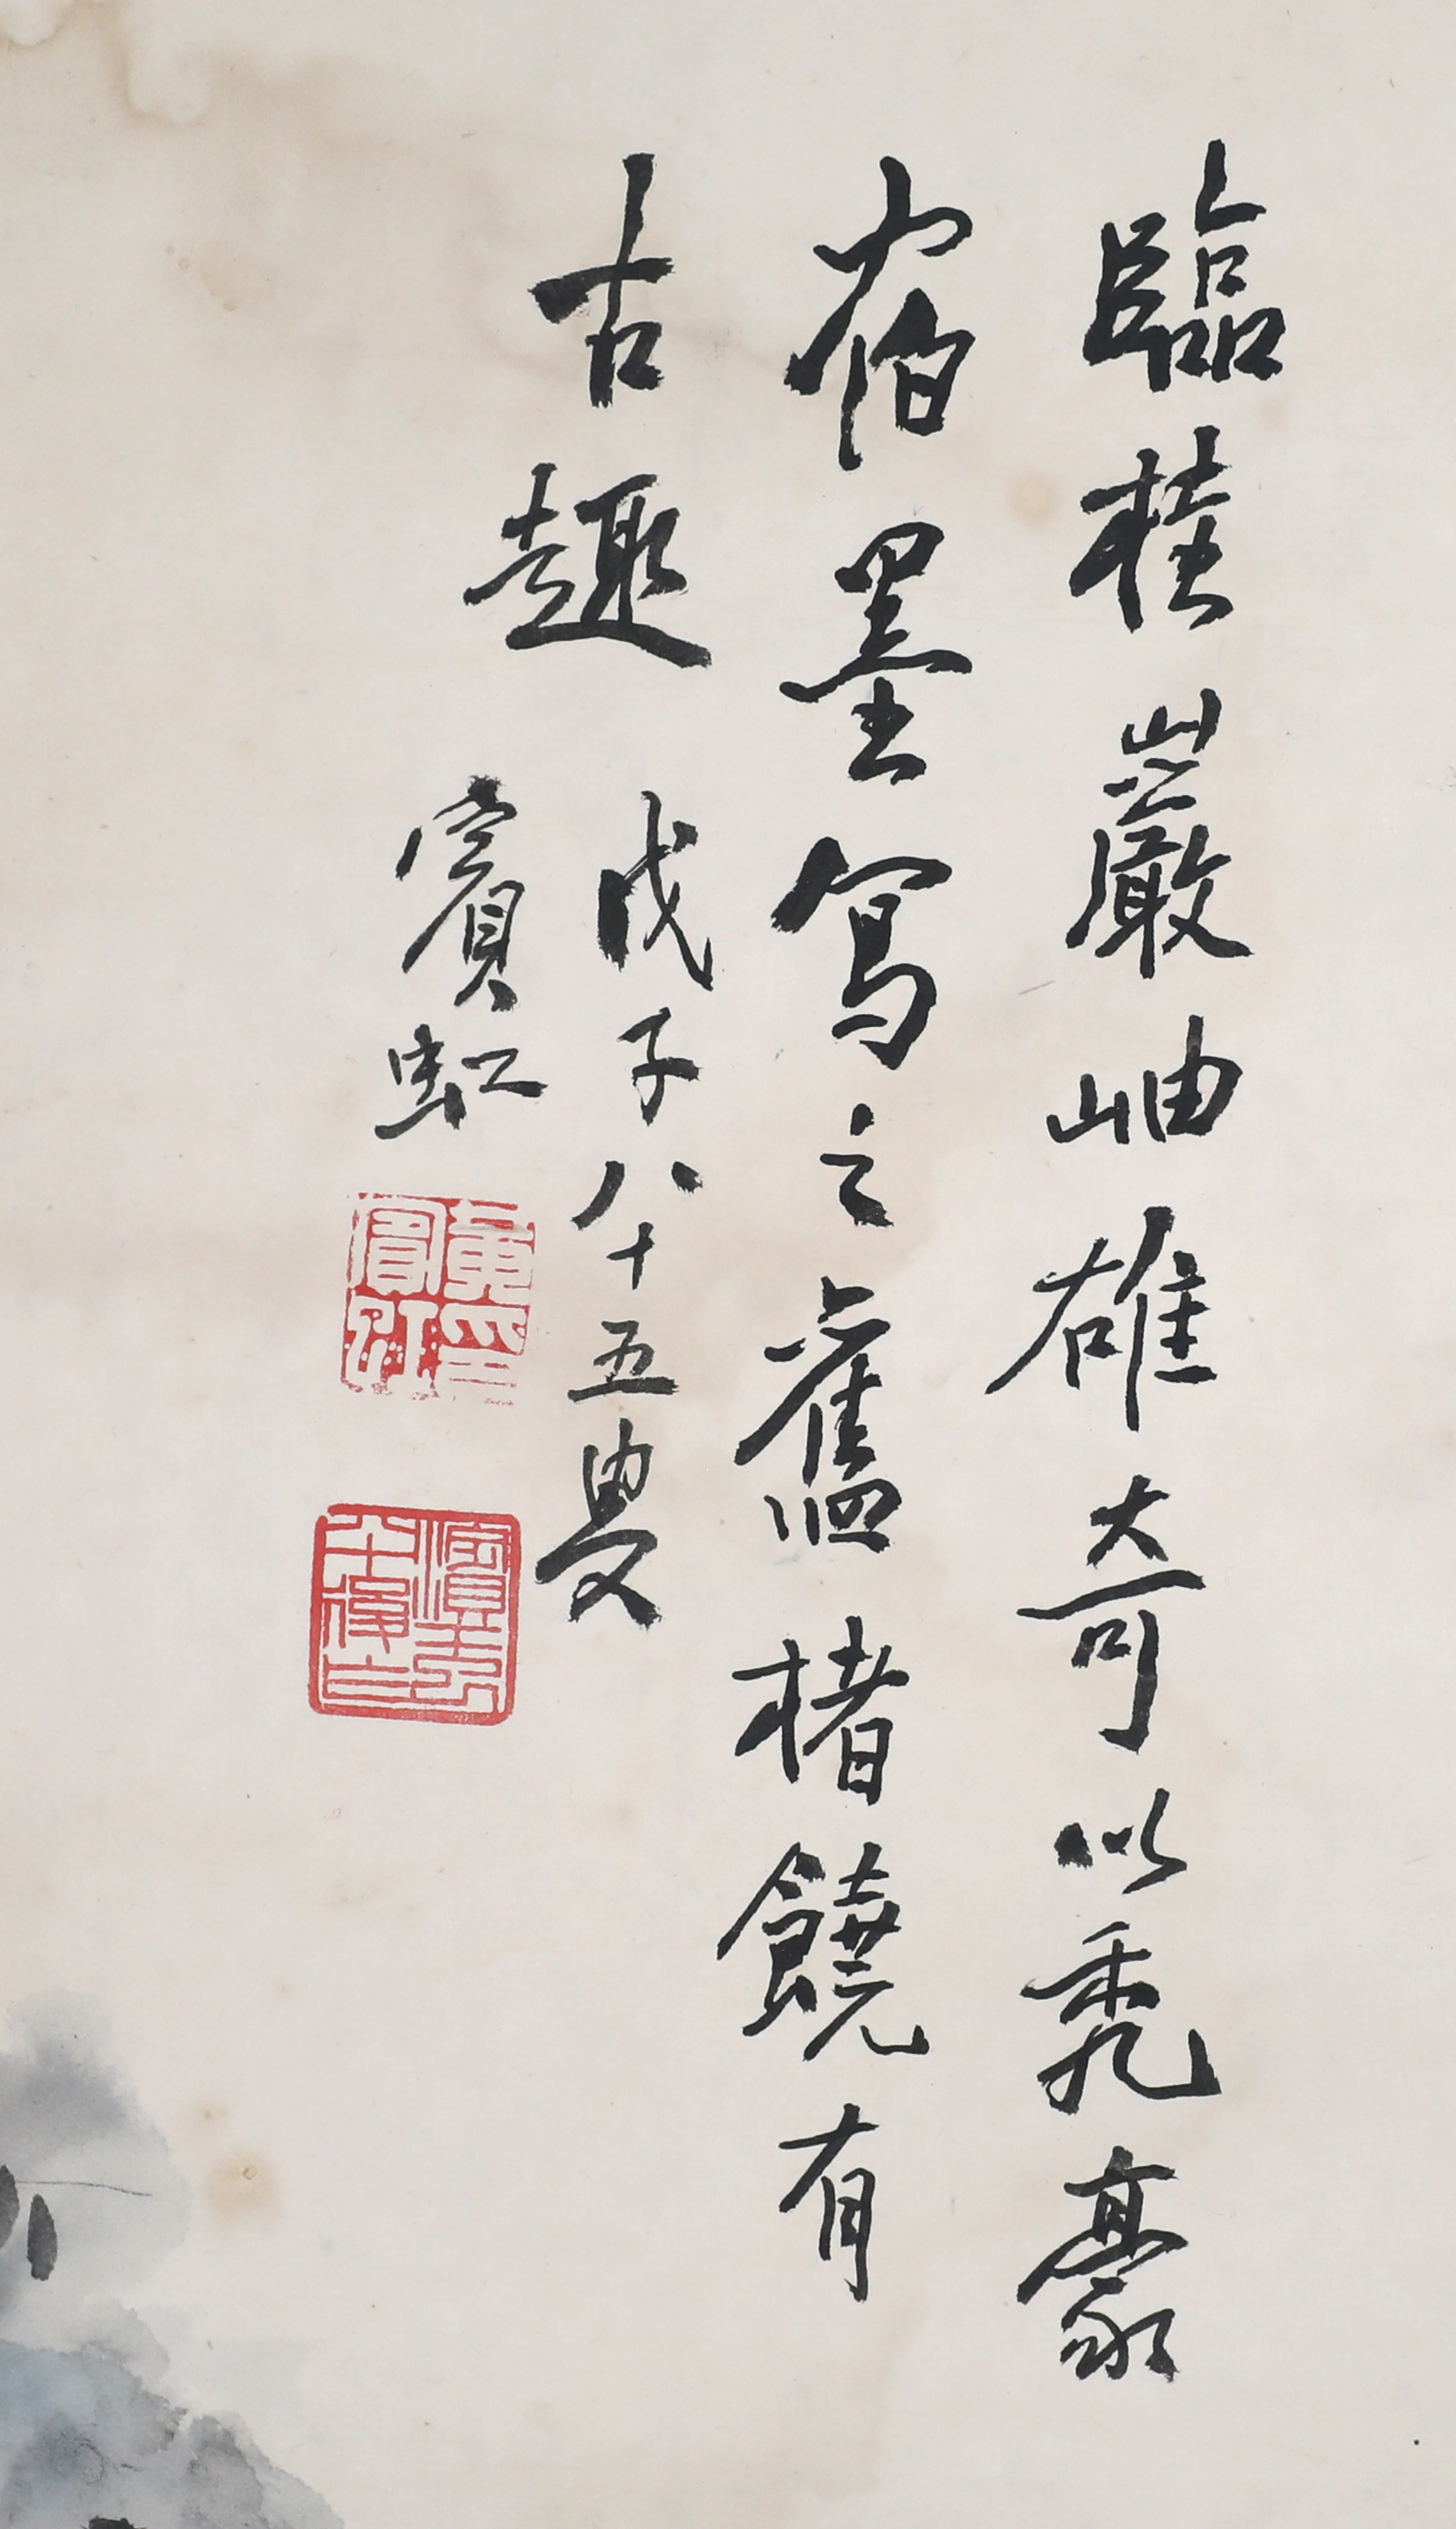 臨桂巖岫雄奇以禿豪
宿墨寫之舊楮饒有
古趣
戊子八十五叟
賓虹
黃賓虹印